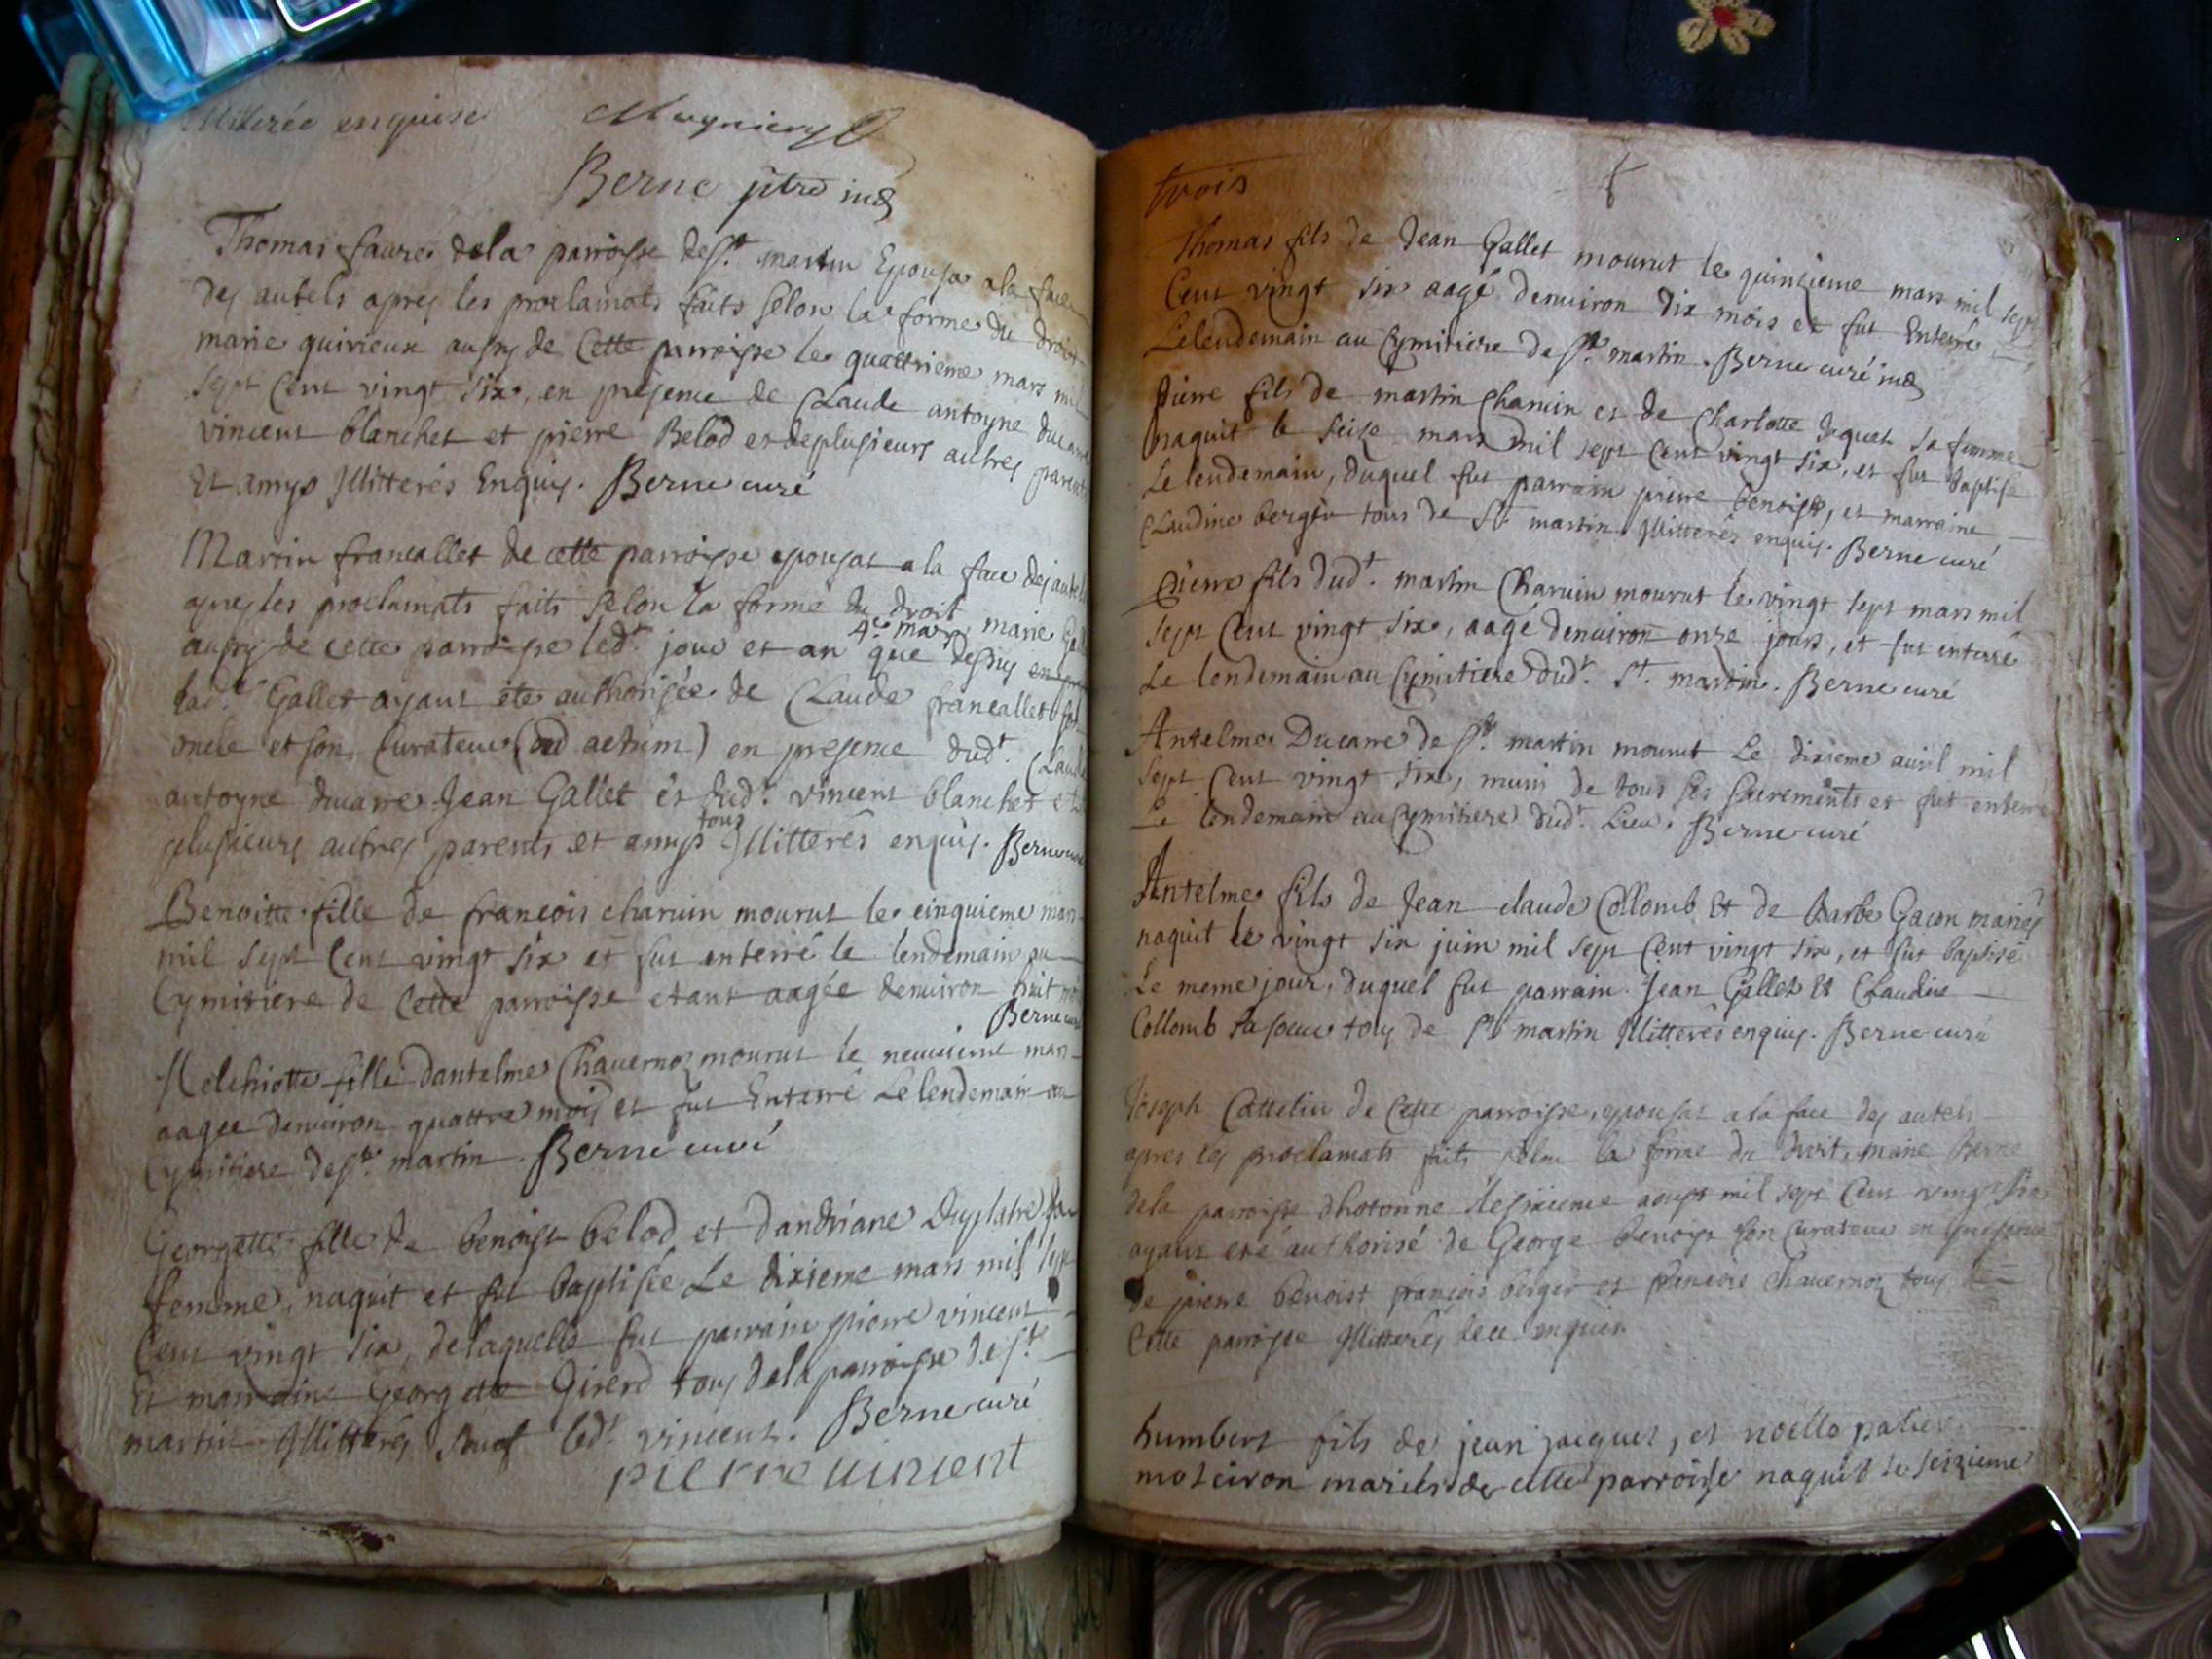 Illiterée enquise
Berne ptre
Thomas faure dela parroisse de St. martin Epousa a la face
des autels apres les proclamats faits selon la forme du droit
marie quirieux aussy de Cette parroisse le quattrieme mars mil
sept Cent vingt six, en presence de Claude antoyne ducarre
vincent blanchet et pierre Belod et deplusieurs autres parents
Et amys Illitterés Enquis. Berne curé
Martin francallet de cette parroisse epousat a la face des autels
apres les proclamats faits selon la forme du droit marie
4e mars
aussy de cette parroisse led.t jour et an que dessus
lad.te Gallet ayant eté authorisée de Claude francallet
oncle et son Curateur (ad actum) en presence dud.t Claude
antoyne ducarre Jean Gallet et dud.t vincent blanchet et
tous
plusieurs autres parents et amys Illitterés enquis. Berne curé
Benoitte fille de francois charuin mourut le cinquieme mars
mil sept Cent vingt six et fut enterré le lendemain au
Cymitiere de Cette parroisse etant aagée denuiron huit
Berne curé
Melchiotte fille dantelme Chauernoz mourut le neuuieme mars
aagée denuiron quattre mois et fut Enterré Le lendemain au
Cymitiere de St. martin. Berne curé
Georgette fille de benoist belod et dandriane Duplatre sa
femme, naquit et fut baptisée Le dixieme mars mil sept
Cent vingt six, de laquelle fut parrain pierre vincent
Et marraine Georgette Girerd tous dela parroisse de St.
martin Illitterés sauf led.t vincent. Berne curé
pierre uincent
trois
Thomas fils de Jean Gallet mourut le quinzieme mars mil sept
Cent vingt six aagé denuiron dix mois et fut Enterré
Le lendemain au Cymitiere de St. martin. Berne curé
pierre fils de martin Charuin et de Charlotte Jiquet sa femme
naquit le seize mars mil sept Cent vingt six, et fut baptisé
Le lendemain, duquel fut parrain pierre benoist, et marraine
Claudine berger tous de St. martin Illitterés enquis. Berne curé
Pierre fils dud.t martin Charuin mourut le vingt sept mars mil
sept Cent vingt six, aagé denuiron onze jours, et fut enterré
Le lendemain au Cymitiere dud.t St. martin. Berne curé
Antelme Ducarre de St. martin mourut Le dixieme auril mil
sept Cent vingt six, muni de tous ses sacrements et fut enterré
Le lendemain au Cymitiere dud.t Lieu. Berne curé
Antelme fils de Jean claude Collomb Et de Barbe Gacon mariés
naquit le vingt six juin mil sept Cent vingt six, et fut baptisé
Le meme jour, duquel fut parrain Jean Gallet Et Claudine
Collomb sa soeur tous de St. martin Illitterés enquis. Berne curé
Joseph Cattelin de Cette parroisse, epousat a la face des autels
apres les proclamats faits selon la forme du droit, marie Berne
dela parroisse dhotonne le sixieme aoust mil sept Cent vingt six
ayant eté authorisé de George benoist son Curateur en presence
de pierre benoist françois berger et francois Chauernoz tous de
Cette parroisse Illitterés enquis
humbert fils de jean jacquet, et noelle
moteiron mariés de cette parroisse naquit le seizieme